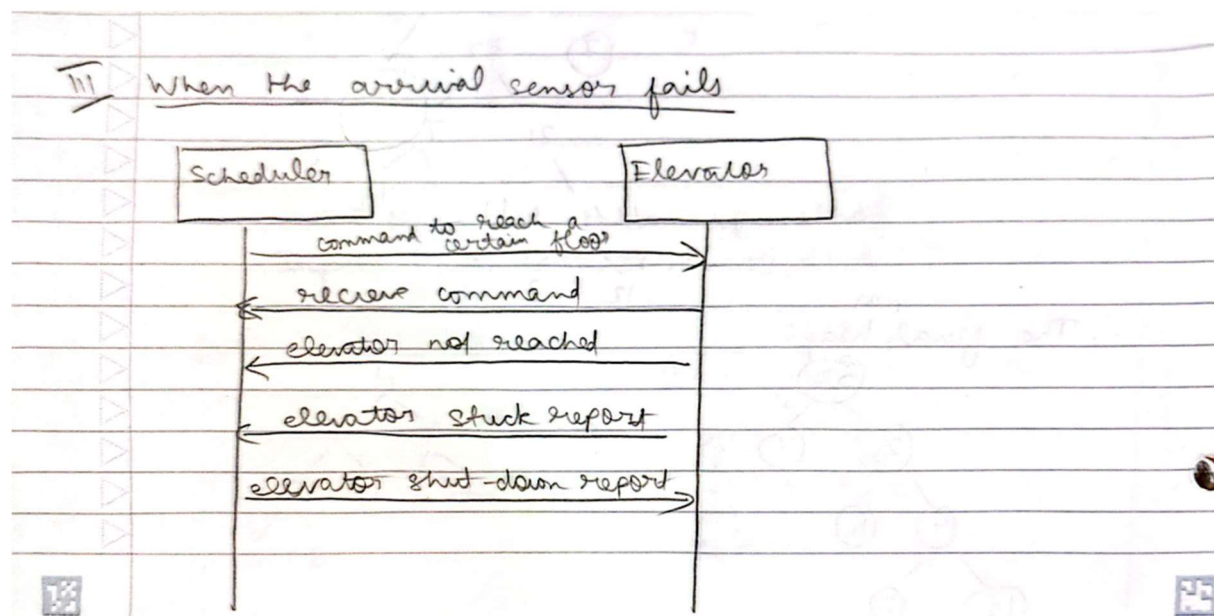 III When the arrival sensor fails
Scheduler
Elevator
command to reach a
certain floor
recieve command
elevator not reached
elevator stuck report
elevator shut-down report